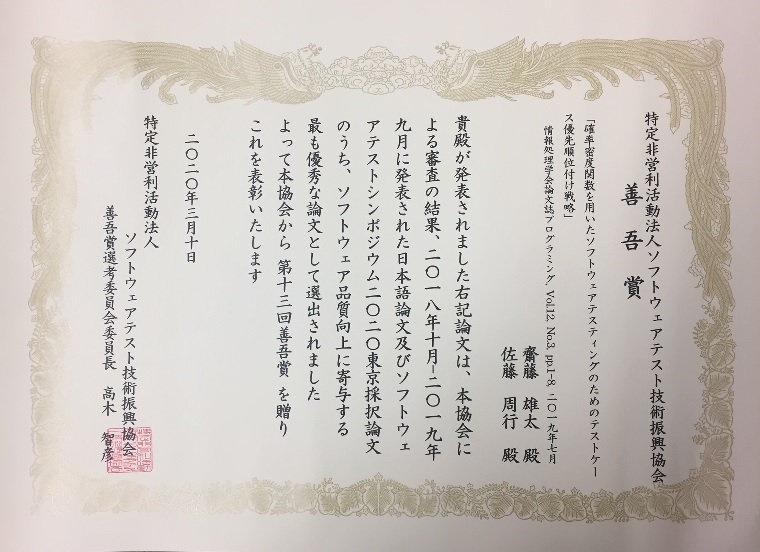 特定非営利活動法人ソフトウェアテスト技術振興協会
善吾賞
「確率密度関数を用いたソフトウェアテスティングのためのテストケー
ス優先順位付け戦略」
情報処理学会論文誌プログラミング, Vol.12 No.3 pp.1-8 二〇一九年七月
齋藤 雄太 殿
佐藤 周行 殿
貴殿が発表されました右記論文は、本協会に
よる審査の結果、二〇一八年十月–二〇一九年
九月に発表された日本語論文及びソフトウェ
アテストシンポジウム二〇二〇東京採択論文
のうち、ソフトウェア品質向上に寄与する
最も優秀な論文として選出されました
よって本協会から 第十三回善吾賞 を贈り
これを表彰いたします
二〇二〇年三月十日
特定非営利活動法人
ソフトウェアテスト技術振興協会
善吾賞選考委員会委員長 高木 智彦